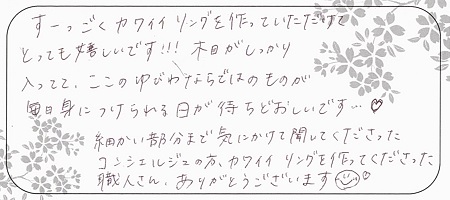 すーっごくカワイイリングを作っていただけて
とっても嬉しいです!!! 木目がしっかり
入ってて、ここのゆびわならではのものが
毎日身につけられる日が待ちどおしいです…♡
細かい部分まで気にかけて聞してくださった
コンシェルジュの方、カワイイリングを作ってくださった
職人さん、ありがとうございます